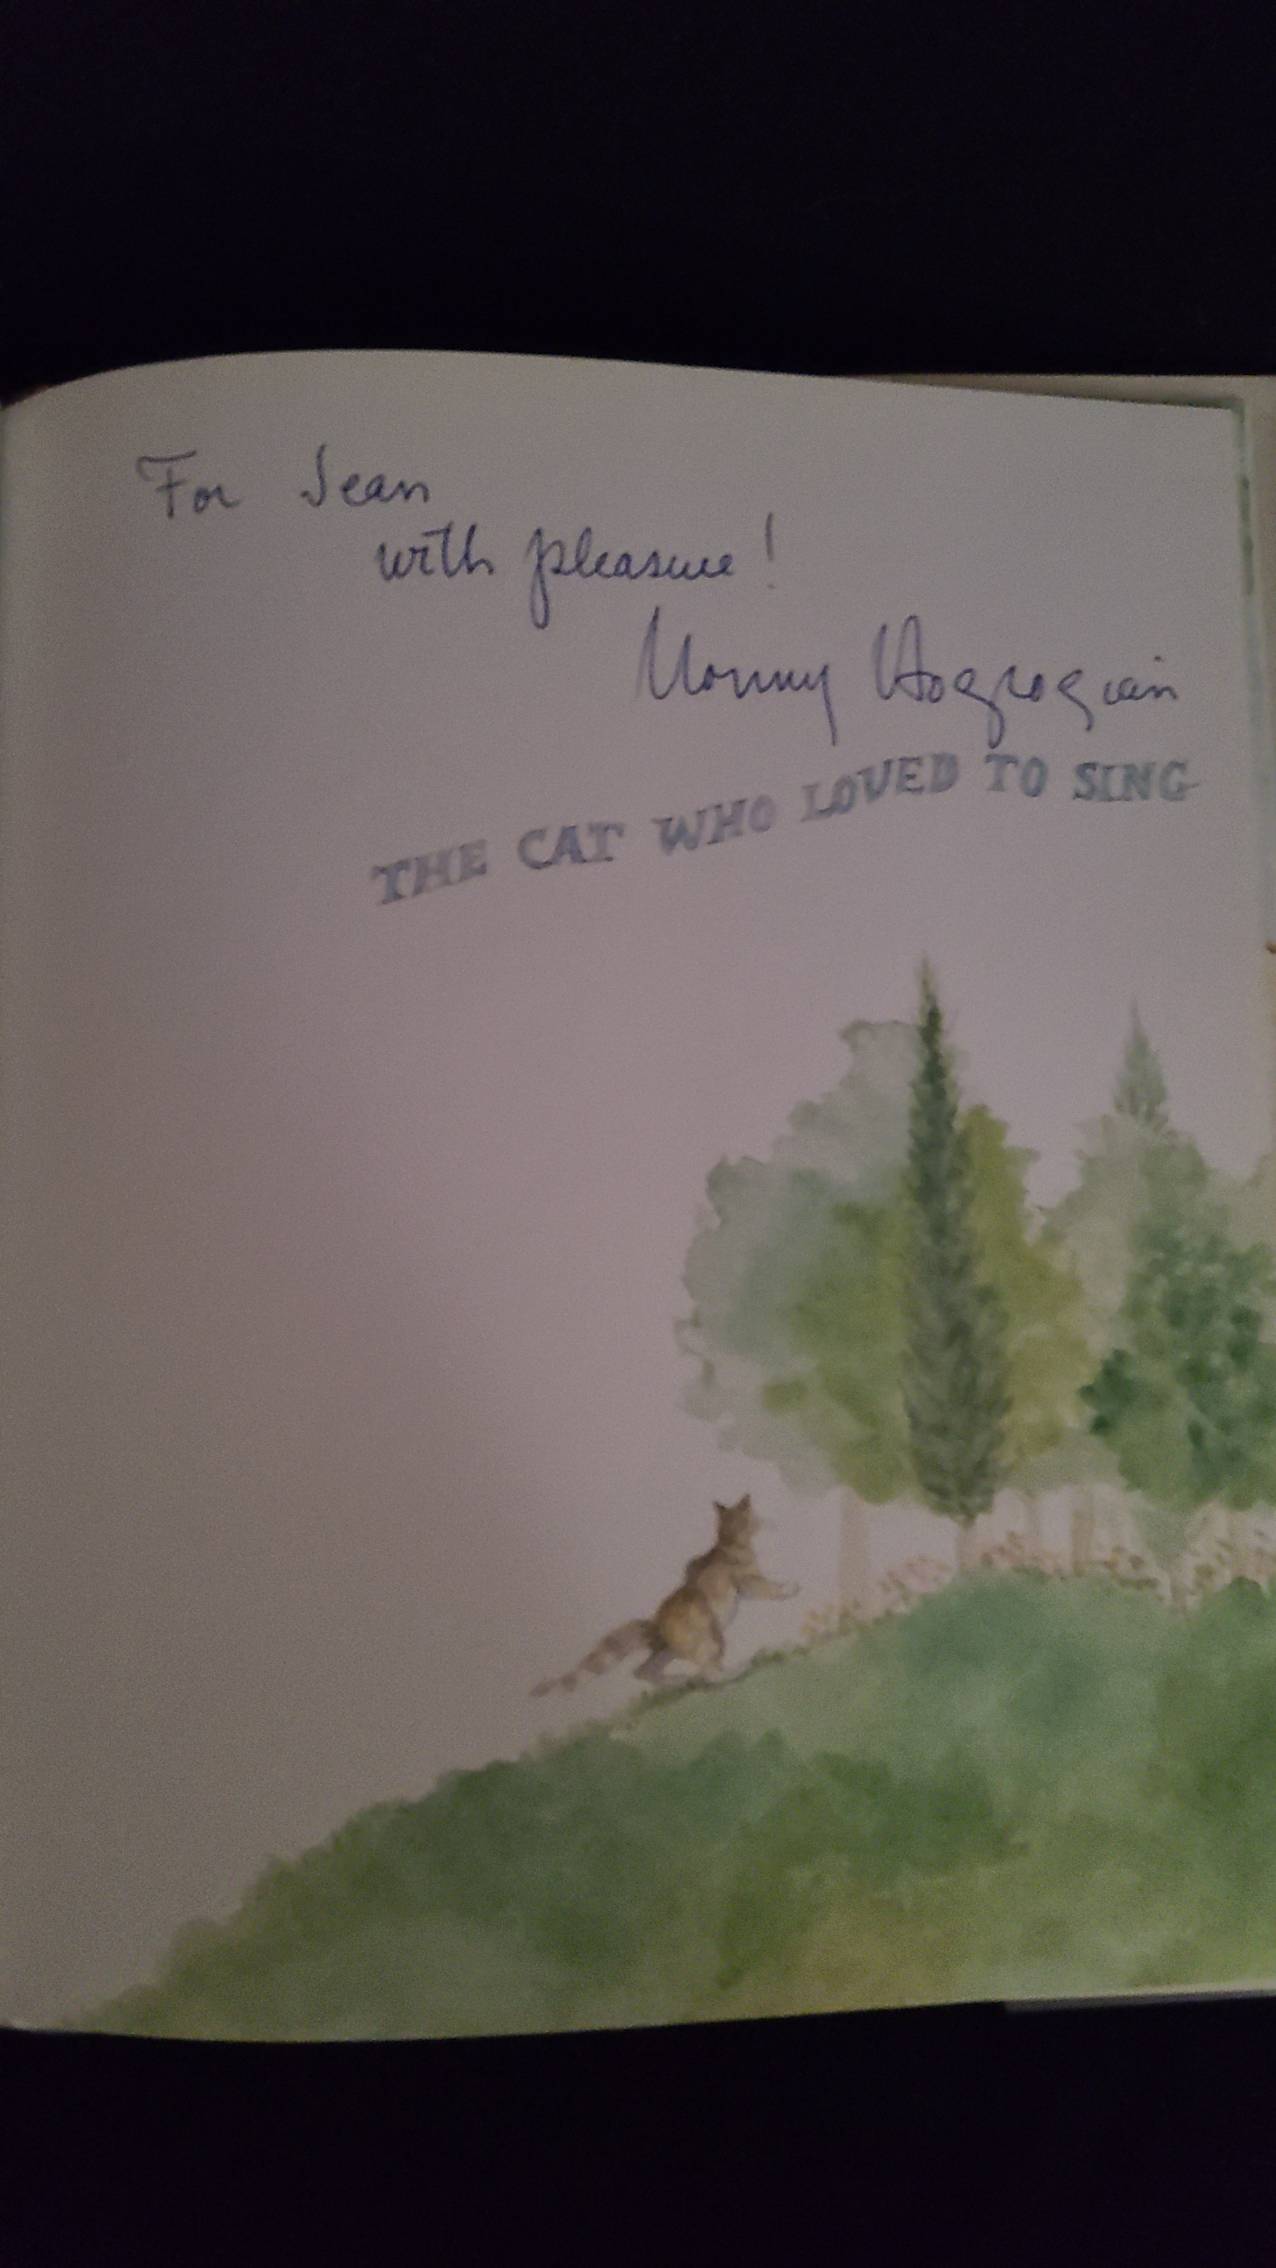 For Jean
with pleasure!
Nonny Hogrogian
THE CAT WHO LOVED TO SING